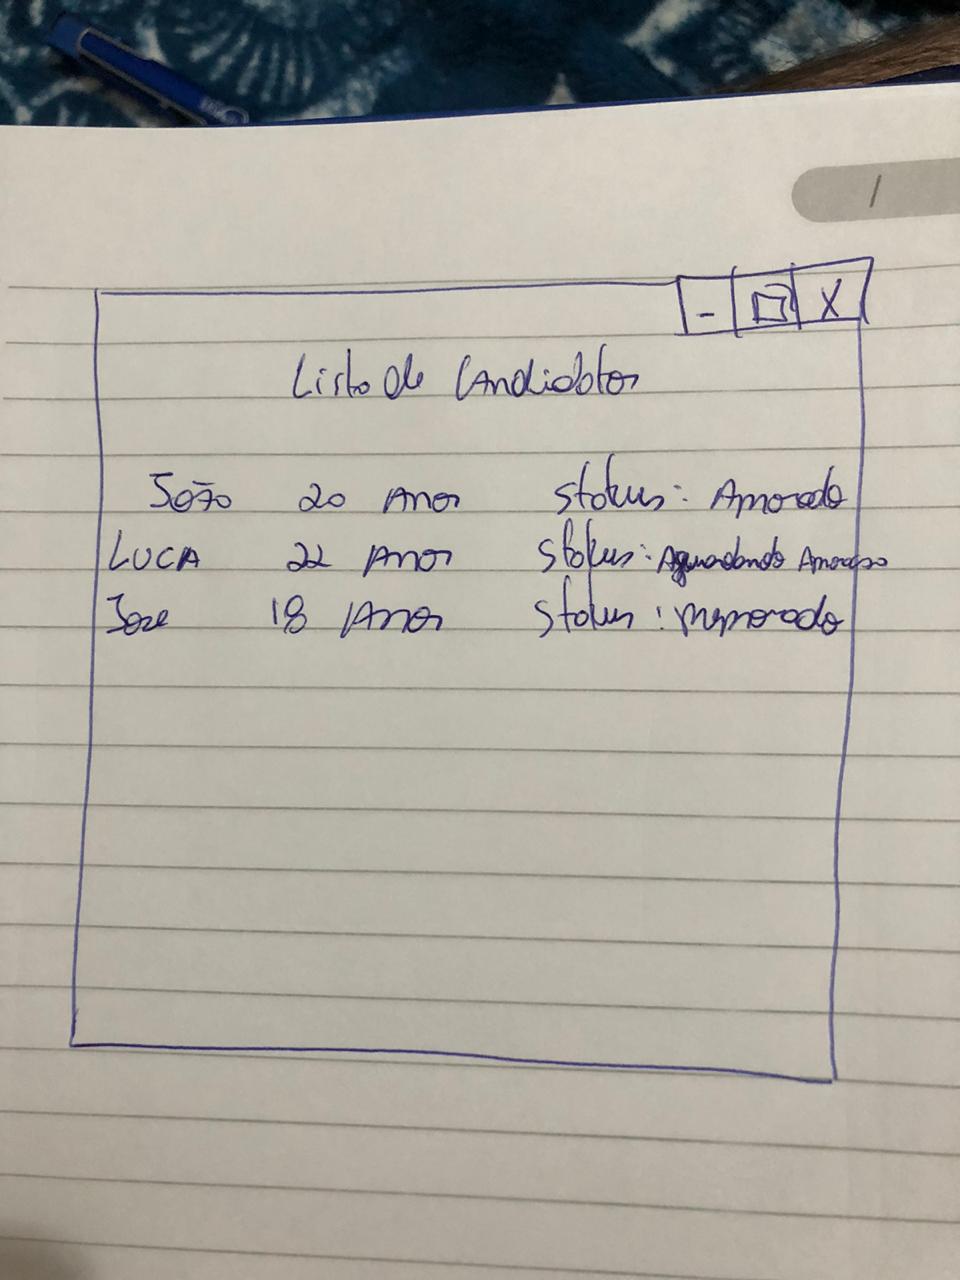 Lista de Candidatos
João 20 Anos Status: Aprovado
LUCA 22 Anos Status: Aguardando Aprovação
Jose 18 Anos Status: Reprovado